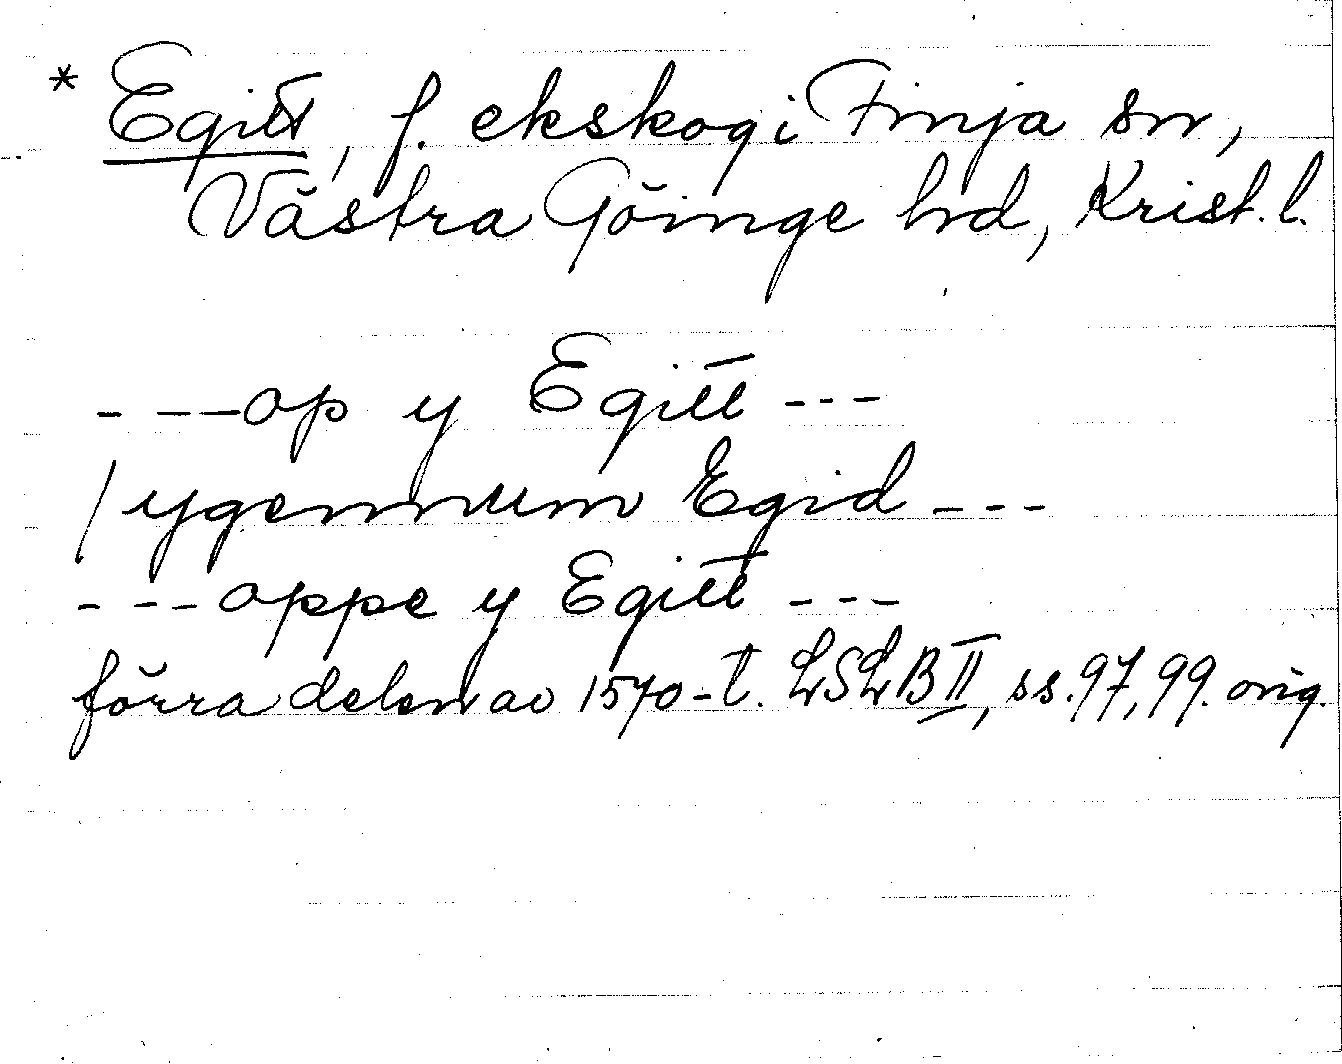 * Egitt, f. ekskog i Finja sn,
Västra Göinge hd, Krist. l.
- - - op y Egitt - - -
/ ygennum Egid - - -
- - - oppe y Egitt - - -
förra delen av 1570-t. LSLB II, ss. 97, 99. orig.